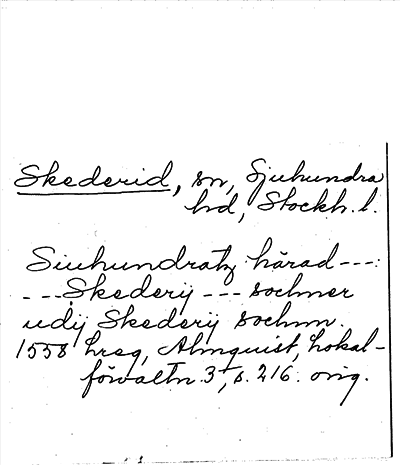 Skederid, sn, Sjuhundra
hd, Stockh. l.
Siuhundratz härad ---:
---Skederij --- sochner
udij Skederij sochnn.
1558 hreg, Almquist, Lokal-
förvaltn. 3, s. 216. orig.